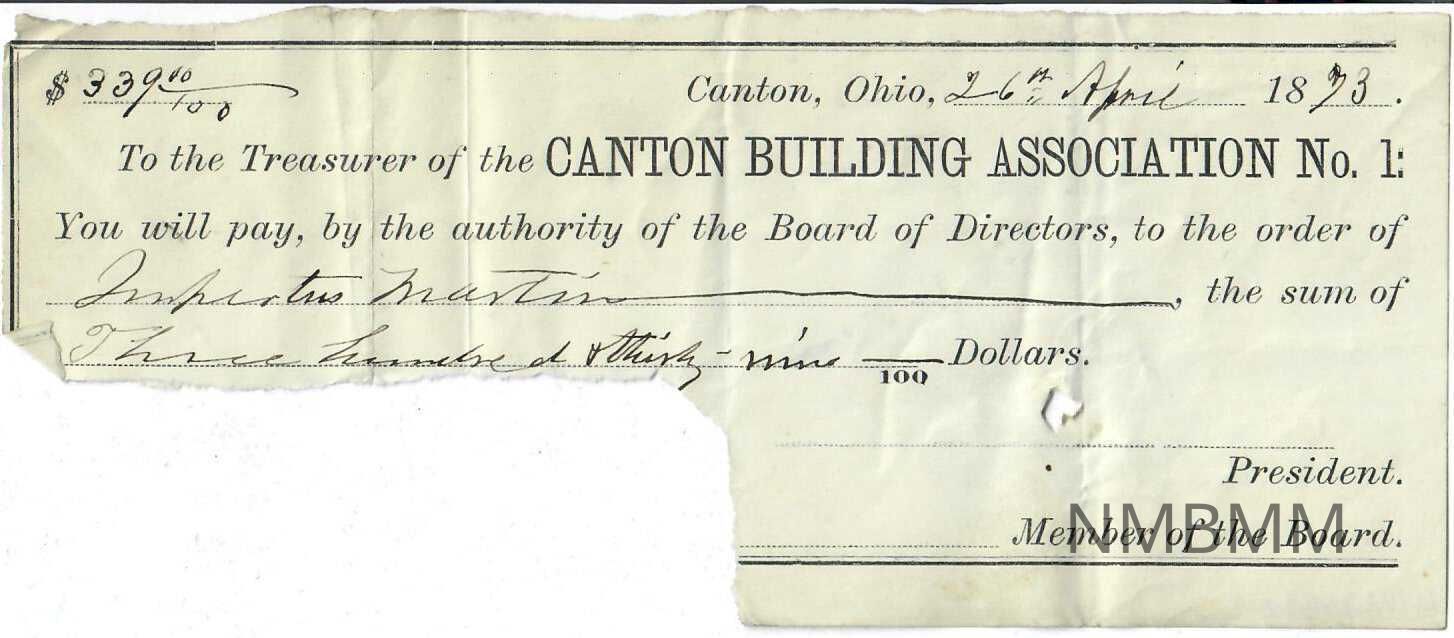 $ 339 00/100 Canton, Ohio, 26th April 1873.
To the Treasurer of the CANTON BUILDING ASSOCIATION No. 1:
You will pay, by the authority of the Board of Directors, to the order of
Martin, the sum of
Three hundred & thirty-nine /100 Dollars.
President.
Member of the Board.
NMBMM